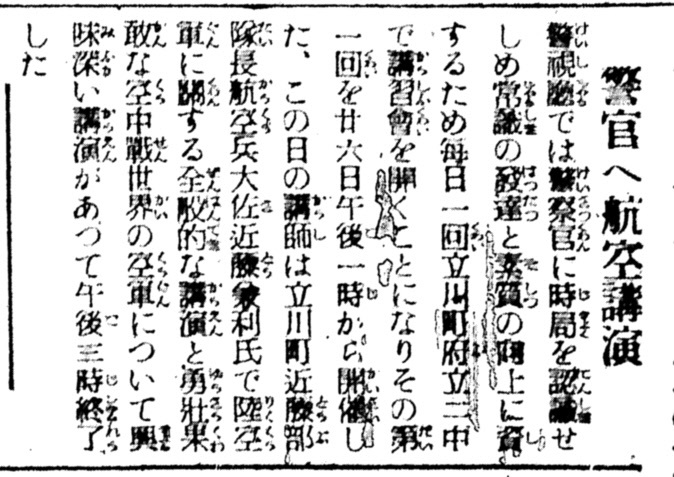 警官へ航空講演
警視廳では警察官に時局を認識せ
しめ常識の發達と素質の向上に資
するため毎日一回立川町府立二中
で講習會を開くことになりその第
一回を廿六日午後一時から開催し
た、この日の講師は立川町近藤部
隊長航空兵大佐近藤兼利氏で陸空
軍に關する全般的な講演と勇壯果
敢な空中戰世界の空軍について興
味深い講演があつて午後三時終了
した